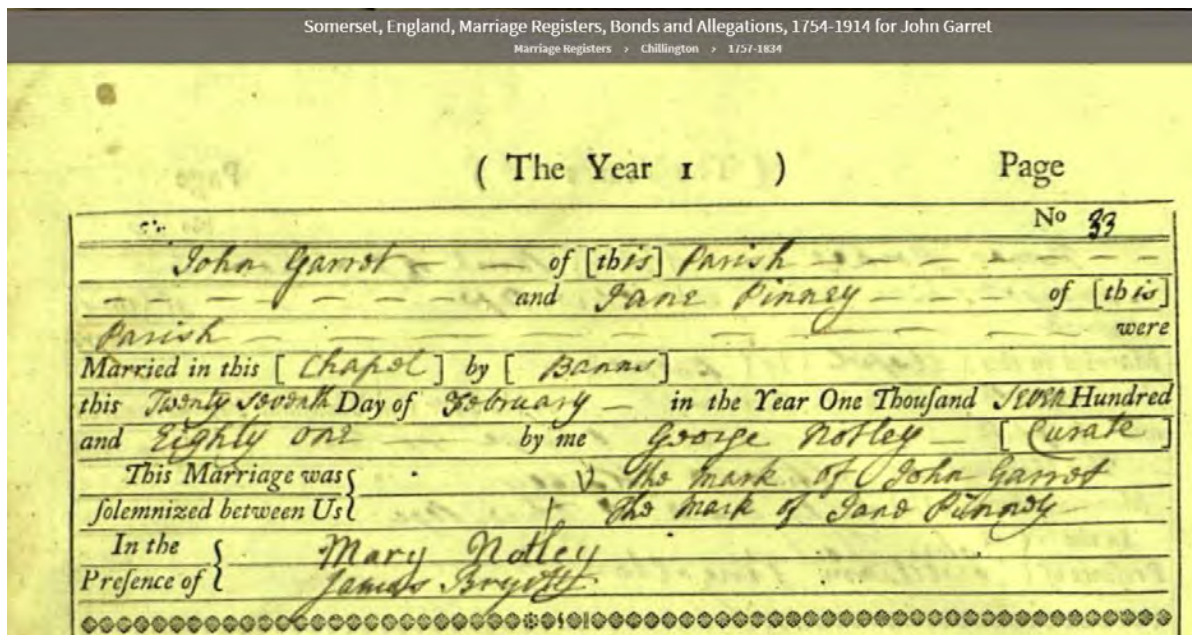 Somerset, England, Marriage Registers, Bonds and Allegations, 1754-1914 for John Garret
Marriage Registers > Chillington > 1757-1834
( The Year 1 ) Page
No 33
John Garret — — of [this] Parish — — — —
— — — — — — and Jane Pinney — — — of [this]
Parish — — — — — — — — were
Married in this [ Chapel ] by [ Banns ]
this Twenty Seventh Day of February — in the Year One Thouſand Seven Hundred
and Eighty one — by me George Notley — [ Curate ]
This Marriage was { The mark of John Garret
ſolemnized between Us { The mark of Jane Pinney
In the { Mary Notley
Preſence of { James